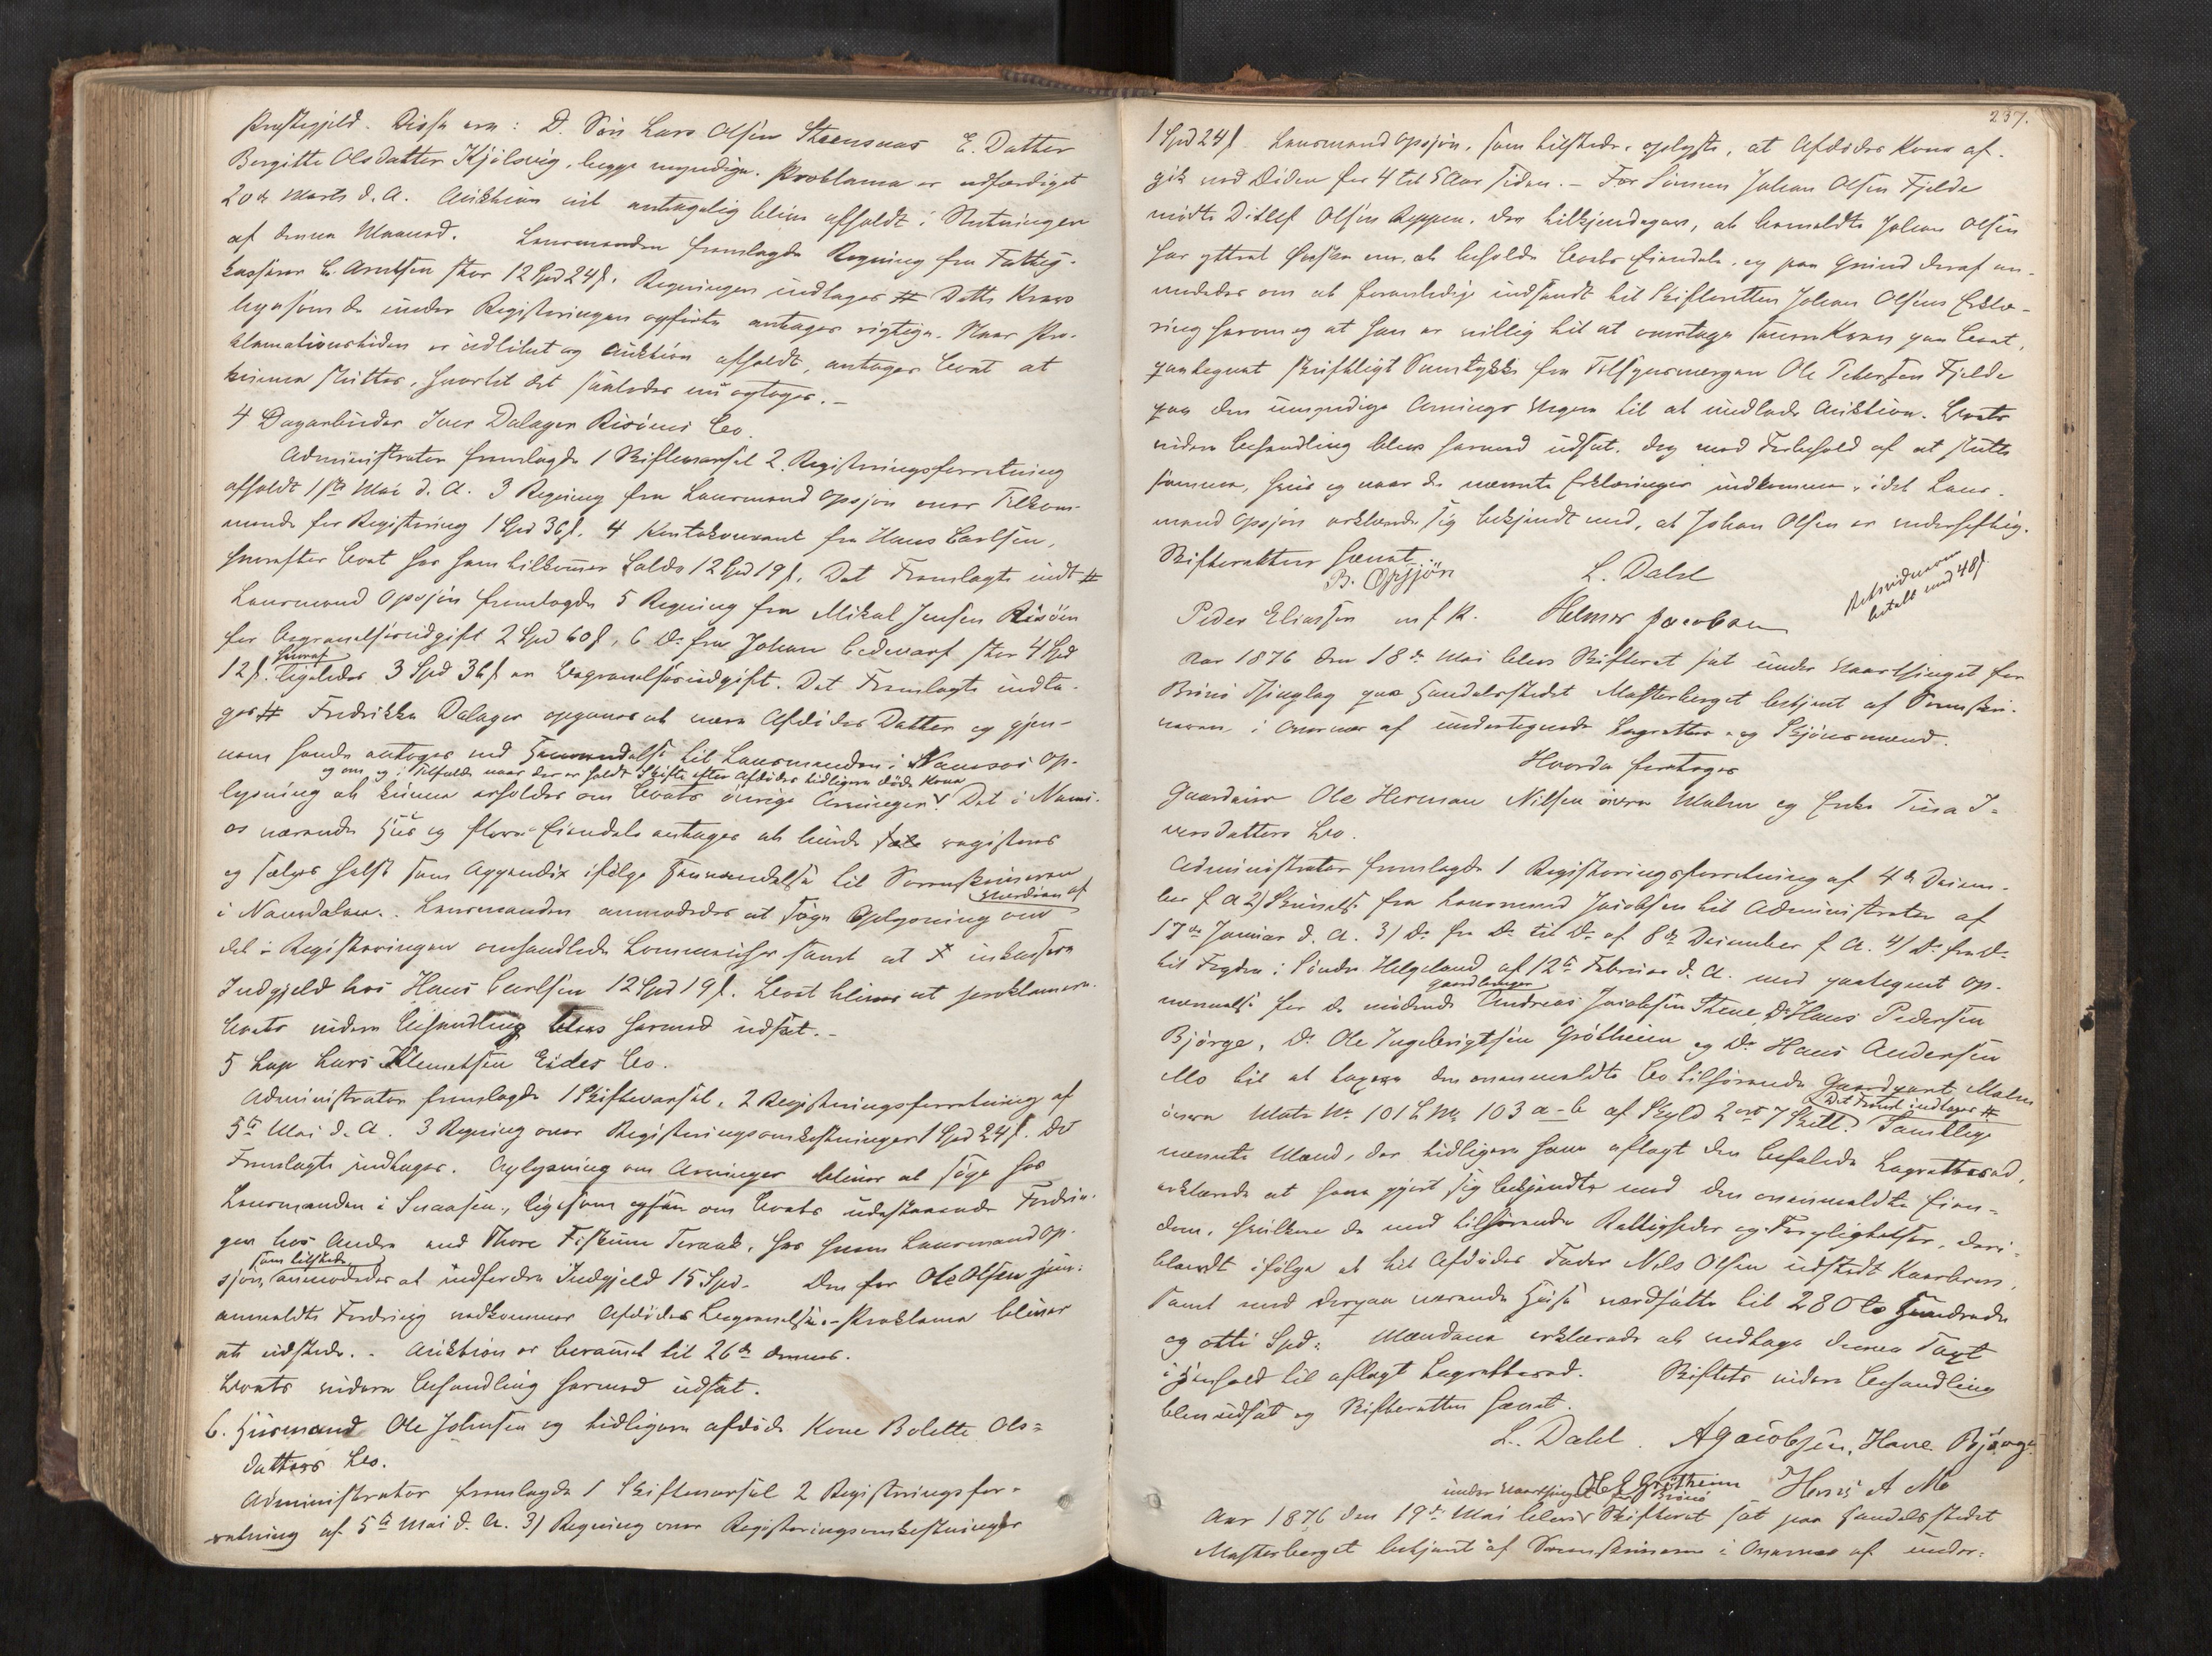 Præstegjeld. Disse ere: D. Søn Lars Olsen Steensnas E. Datter
Bergitte Olsdatter Kjilsvig, begge myndige. Proklama er udfærdiget
20de Marts d. A. Auktion vil antagelig blive afholdt i Slutningen
af denne Maaned. Lensmanden fremlagde Regning fra Fattig-
kasserer C. Arntsen stor 12 Spd 24 s. Regningen indtages # Dette Krav
ligesom de under Registeringen opførte antages rigtige. Naar Pro-
klamationstiden er udløbet og Auktion afholdt, antages Boet at
kunne sluttes, hvortil det saaledes nu optages. -
4 Dagarbeider Iver Dalager Risöens Bo
Administrator fremlagde 1 Skiftevarsel 2. Registreringsforretning
afholdt 1ste Mai d. A. 3 Regning fra Lensmand Opsjøn over Tilkom-
mende for Registering 1 Spd 36 s. 4 Kontokourant fra Hans Carlsen,
hvorefter Boet hos ham tilkommer Saldo 12 Spd 19 s. Det Fremlagte indt #
Lensmand Opsjøn fremlagde 5 Regning fra Mikal Jensen Risöen
for Begravelsesudgift 2 Spd 60 s, 6 Do fra Johan Cedevarf stor 4 Spd
12 s. hvoraf ligeledes 3 Spd 36 s er Begravelsesudgift. Det Fremlagte indta-
ges # Fredrikke Dalager opgaves at være Afdødes Datter og gjen-
nem hende antages ved Henvendelse til Lensmanden i Namsos Op-
og om og i Tilfælde naar der er holdt Skifte efter Afdødes tidligere døde Kone
lysning at kunne erholdes om Boets øvrige Arvinger Det i Nams-
os værende Huus og flere Eiendele antages at burde registeres
og sælges helst som Appendix ifølge Henvendelse til Sorenskriveren
i Namdalen. Lensmanden anmodedes at søge Oplysning om Værdien af
det i Registeringen omhandlede Lommeuhr samt at inkassere
Indgjeld hos Hans Carlsen 12 Spd 19 s. Boet bliver at proklamere.
Boets videre Behandling blev hermed udsat. -
5 Lap Lars Klemetsen Eides Bo.
Administrator fremlagde 1 Skiftevarsel, 2 Registreringsforretning af
5te Mai d. A. 3 Regning over Registeringsomkostninger 1 Spd 24 s. Det
Fremlagte indtages. Oplysning om Arvinger bliver at søge hos
Lensmanden i Snaasen, ligesom ogsaa om Boets udestaaende Fordrin-
gen hos Andre ved Thore Fiskum Teraak, hos hvem Lensmand Op-
sjøn, som tilstede anmodedes at indfordre Indgjeld 15 Spd. Den for Ole Olsen jun:
anmeldte Fordring vedkommer Afdødes Begravelse. - Proklama bliver
at udstede. - Auktion er berammet til 26de dennes.
Boets videre Behandling hermed udsat.
6. Huusmand Ole Johnsen og tidligere afdøde Kone Bolette Ols-
datters Bo.
Administrator fremlagde 1 Skiftevarsel 2 Registringsfor-
retning af 5te Mai d. A. 3) Regning over Registeringsomkostninger
237.
1 Spd 24 s. Lensmand Opsjøn, som tilstede, oplyste, at Afdødes Kone af-
gik ved Døden for 4 til 5 Aar siden. - For Sønnen Johan Olsen Fjelde
mødte Ditlef Olsen Reppen. Der tilkjendegav, at bemeldte Johan Olsen
har yttret Ønske om, at beholde Boets Eiendele, og paa Grund deraf an-
modedes om at foranledige indsendt til Skifteretten Johan Olsens Erklæ-
ring herom og at han er villig til at overtage samme Krav paa Boet,
paategnet skriftligt Samtykke fra Tilsynsværgen Ole Petersen Fjelde
paa den umyndige Arvings Vegne til at undlade Auktion. Boets
videre Behandling blev hermed udsat, dog med Forbehold af at slutte
samme, hvis og naar de nævnte Erklæringer indkomme, idet Lens-
mand Opsjøn erklærede sig bekjendt med, at Johan Olsen er vederheftig.
Skifteretten hævet.
B. Opsjön L. Dahl
Peder Eliassen m f P. Helmer Jacobsen
Retsvidnerne
betalt med 48 s.
Aar 1876 den 18de Mai blev Skifteret sat under Vaarthinget for
Brönö Thinglag paa Handelsstedet Mosterberget betjent af Sorenskri-
veren i Overvær af undertegnede Lagrettes- og Skjönsmænd.
Hvorda foretoges
Gaardeier Ole Herman Nilsen övre Malm og Enke Tina I-
versdatters Bo.
Administrator fremlagde 1 Registeringsforretning af 4de Decem-
ber f A 2) Skrivelse fra Lensmand Jacobsen til Administrator af
17de Januar d. A. 3) Do fra Do til Do af 8de December f. A. 4) Do fra Do
til Fogden i Söndre Helgeland af 12te Februar d. A. med paategnet Op-
nævnelse for de mødende Gaardbruger Andreas Jacobsen Stene, Do Hans Pedersen
Bjørge, Do Ole Ingebrigtsen Grötheim og Do Hans Andersen
Mo til at taxere den ovenmeldte Bo tilhørende Gaardpart Malm
övre Matr No 101 L No 103 a - b af Skyld 2 ort 7 Skill. Det Freml indtages # Samtlige
nævnte Mænd, der tidligere have aflagt den befalede Lagrettesed,
erklærede at have gjort sig bekjendte med den ovenmeldte Eien-
dom, hvilken de med tilhørende Rettigheder og Forpligtelser, deri-
blandt ifølge et til Afdødes Fader Nils Olsen udstedt Kaarbrev,
samt med derpaa værende Huse værdsatte til 280 to Hundrede
og otti Spd: Mændene erklærede at vedtage denne Taxt
i Henhold til aflagt Lagrettesed. Skiftets videre Behandling
blev udsat og Skifteretten hævet.
L. Dahl. A Jacobsen, Hans Bjørge.
Ole I Grötheim Hans A Mo
under Vaarthinget for Brönö
Aar 1876 den 19de Mai blev Skifteret sat paa Handelsstedet
Mosterberget betjent af Sorenskriveren i Overvær af under-